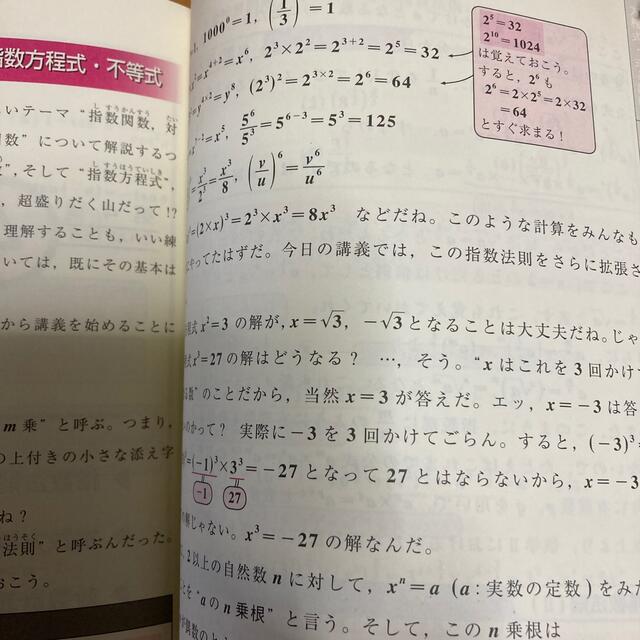 指数方程式・不等式
いテーマ “指数関数, 対
数” について解説するつ
”, そして “指数方程式”,
, 超盛りだく山だって!?
理解することも, いい練
いては, 既にその基本は
から講義を始めることに
m乗” と呼ぶ。つまり,
の上付きの小さな添え字
ね?
法則” と呼ぶんだった。
おこう。
1000⁰=1, (1/3) =1
=x⁴⁺²=x⁶, 2³×2²=2³⁺²=2⁵=32
=y⁴ˣ²=y⁸, (2³)²=2³ˣ²=2⁶=64
=x⁵, 5⁶/5³=5⁶⁻³=5³=125
=x³/2³=x³/8, (v/u)⁶=v⁶/u⁶
=(2×x)³=2³×x³=8x³ などだね。このような計算をみんなも
やってたはずだ。今日の講義では, この指数法則をさらに拡張さ
2⁵=32
2¹⁰=1024
は覚えておこう。
すると, 2⁶も
2⁶=2×2⁵=2×32
=64
とすぐ求まる!
式 x²=3 の解が, x=√3, −√3となることは大丈夫だね。じゃ
式 x³=27 の解はどうなる? …, そう。“x はこれを3回かけて
数” のことだから, 当然 x=3 が答えだ。エッ, x=−3 は答
のかって? 実際に−3を3回かけてごらん。すると, (−3)³=
=(−1)³×3³=−27となって27とはならないから, x=−3
−1 27
解じゃない。x³=−27 の解なんだ。
, 2以上の自然数 n に対して, xⁿ=a (a:実数の定数)をみた
とを “a の n 乗根” と言う。そして, この n 乗根は